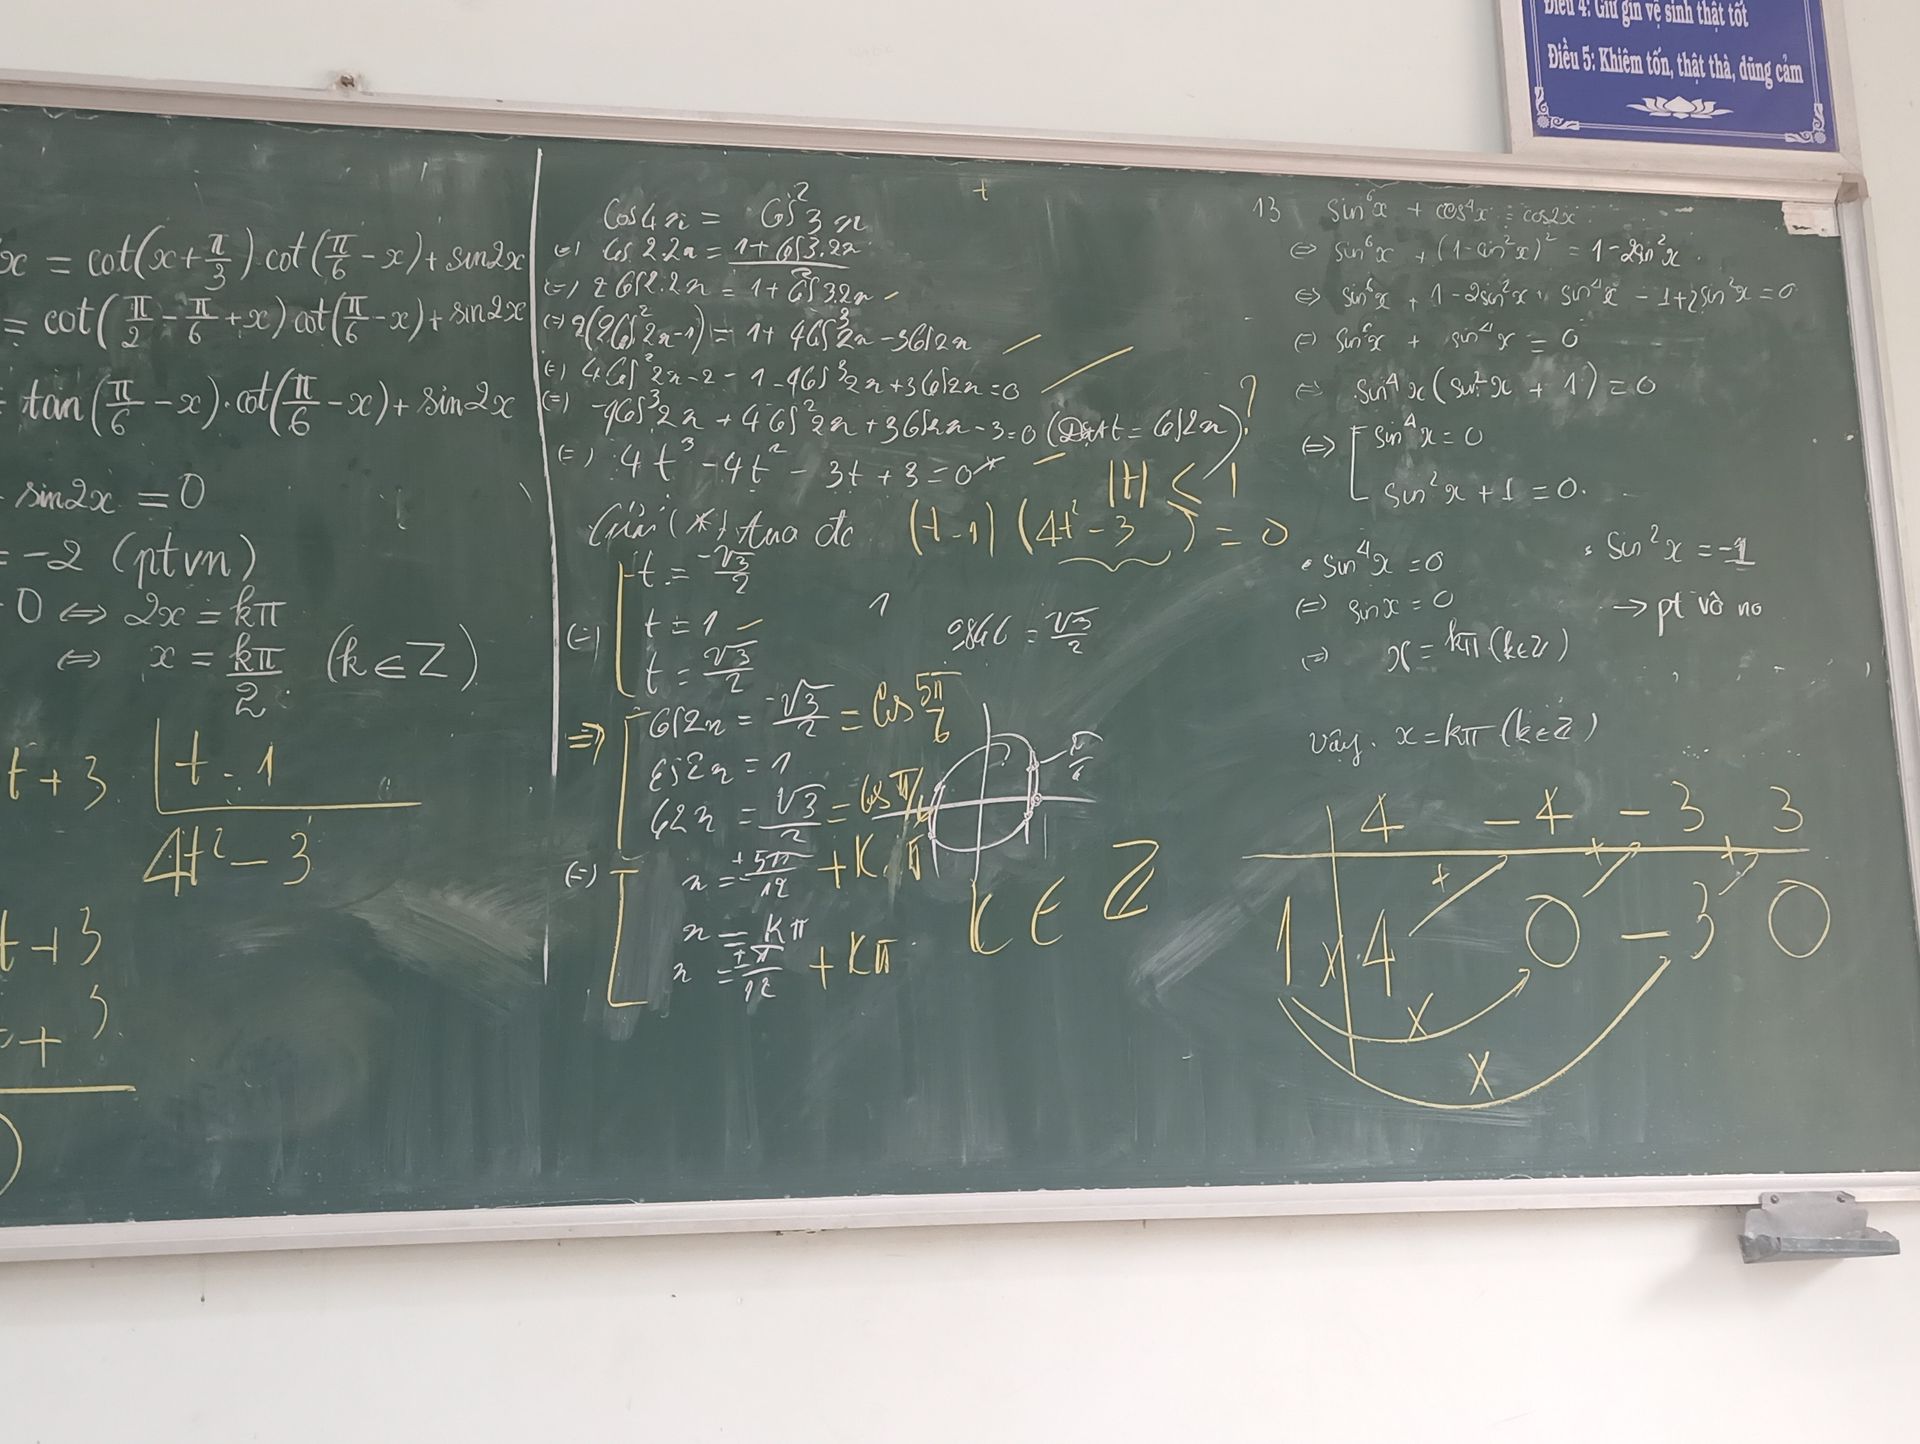 Điều 4: Giữ gìn vệ sinh thật tốt
Điều 5: Khiêm tốn, thật thà, dũng cảm
x = cot(x + π/3).cot(π/6 - x) + sin2x
= cot(π/2 - π/6 + x) cot(π/6 - x) + sin2x
= tan(π/6 - x).cot(π/6 - x) + sin2x
sin2x = 0
= -2 (ptvn)
0 ⇔ 2x = kπ
⇔ x = kπ/2 (k ∈ Z)
t + 3 | t - 1
4t² - 3
t + 3
+ 3
cos4x = cos²3x
(=) cos 2.2x = (1 + cos3.2x)/2
(=) 2cos2.2x = 1 + cos3.2x
(=) 2(2cos²2x - 1) = 1 + 4cos³2x - 3cos2x
(=) 4cos²2x - 2 - 1 - 4cos³2x + 3cos2x = 0
(=) -4cos³2x + 4cos²2x + 3cos2x - 3 = 0 (Đặt t = cos2x) ?
(=) 4t³ - 4t² - 3t + 3 = 0 *
|t| ≤ 1
Giải (*) ta đc (t - 1)(4t² - 3) = 0
(=) [ t = -√3/2
t = 1
t = √3/2
1
= √3/2
⇒ [ cos2x = -√3/2 = cos 5π/6
cos2x = 1
cos2x = √3/2 = cos π/6
(=) [ x = ±5π/12 + Kπ
x = Kπ
x = ±π/12 + Kπ
K ∈ Z
13 sin⁶x + cos⁴x = cos2x
⇔ sin⁶x + (1 - sin²x)² = 1 - 2sin²x
⇔ sin⁶x + 1 - 2sin²x + sin⁴x - 1 + 2sin²x = 0
(=) sin⁶x + sin⁴x = 0
⇔ sin⁴x (sin²x + 1) = 0
⇔ [ sin⁴x = 0
sin²x + 1 = 0.
• sin⁴x = 0
(=) sinx = 0
(=) x = kπ (k∈Z)
• sin²x = -1
→ pt vô no
Vậy x = kπ (k∈Z)
4 -4 -3 3
1 x 4 0 -3 0
+ + +
x
x